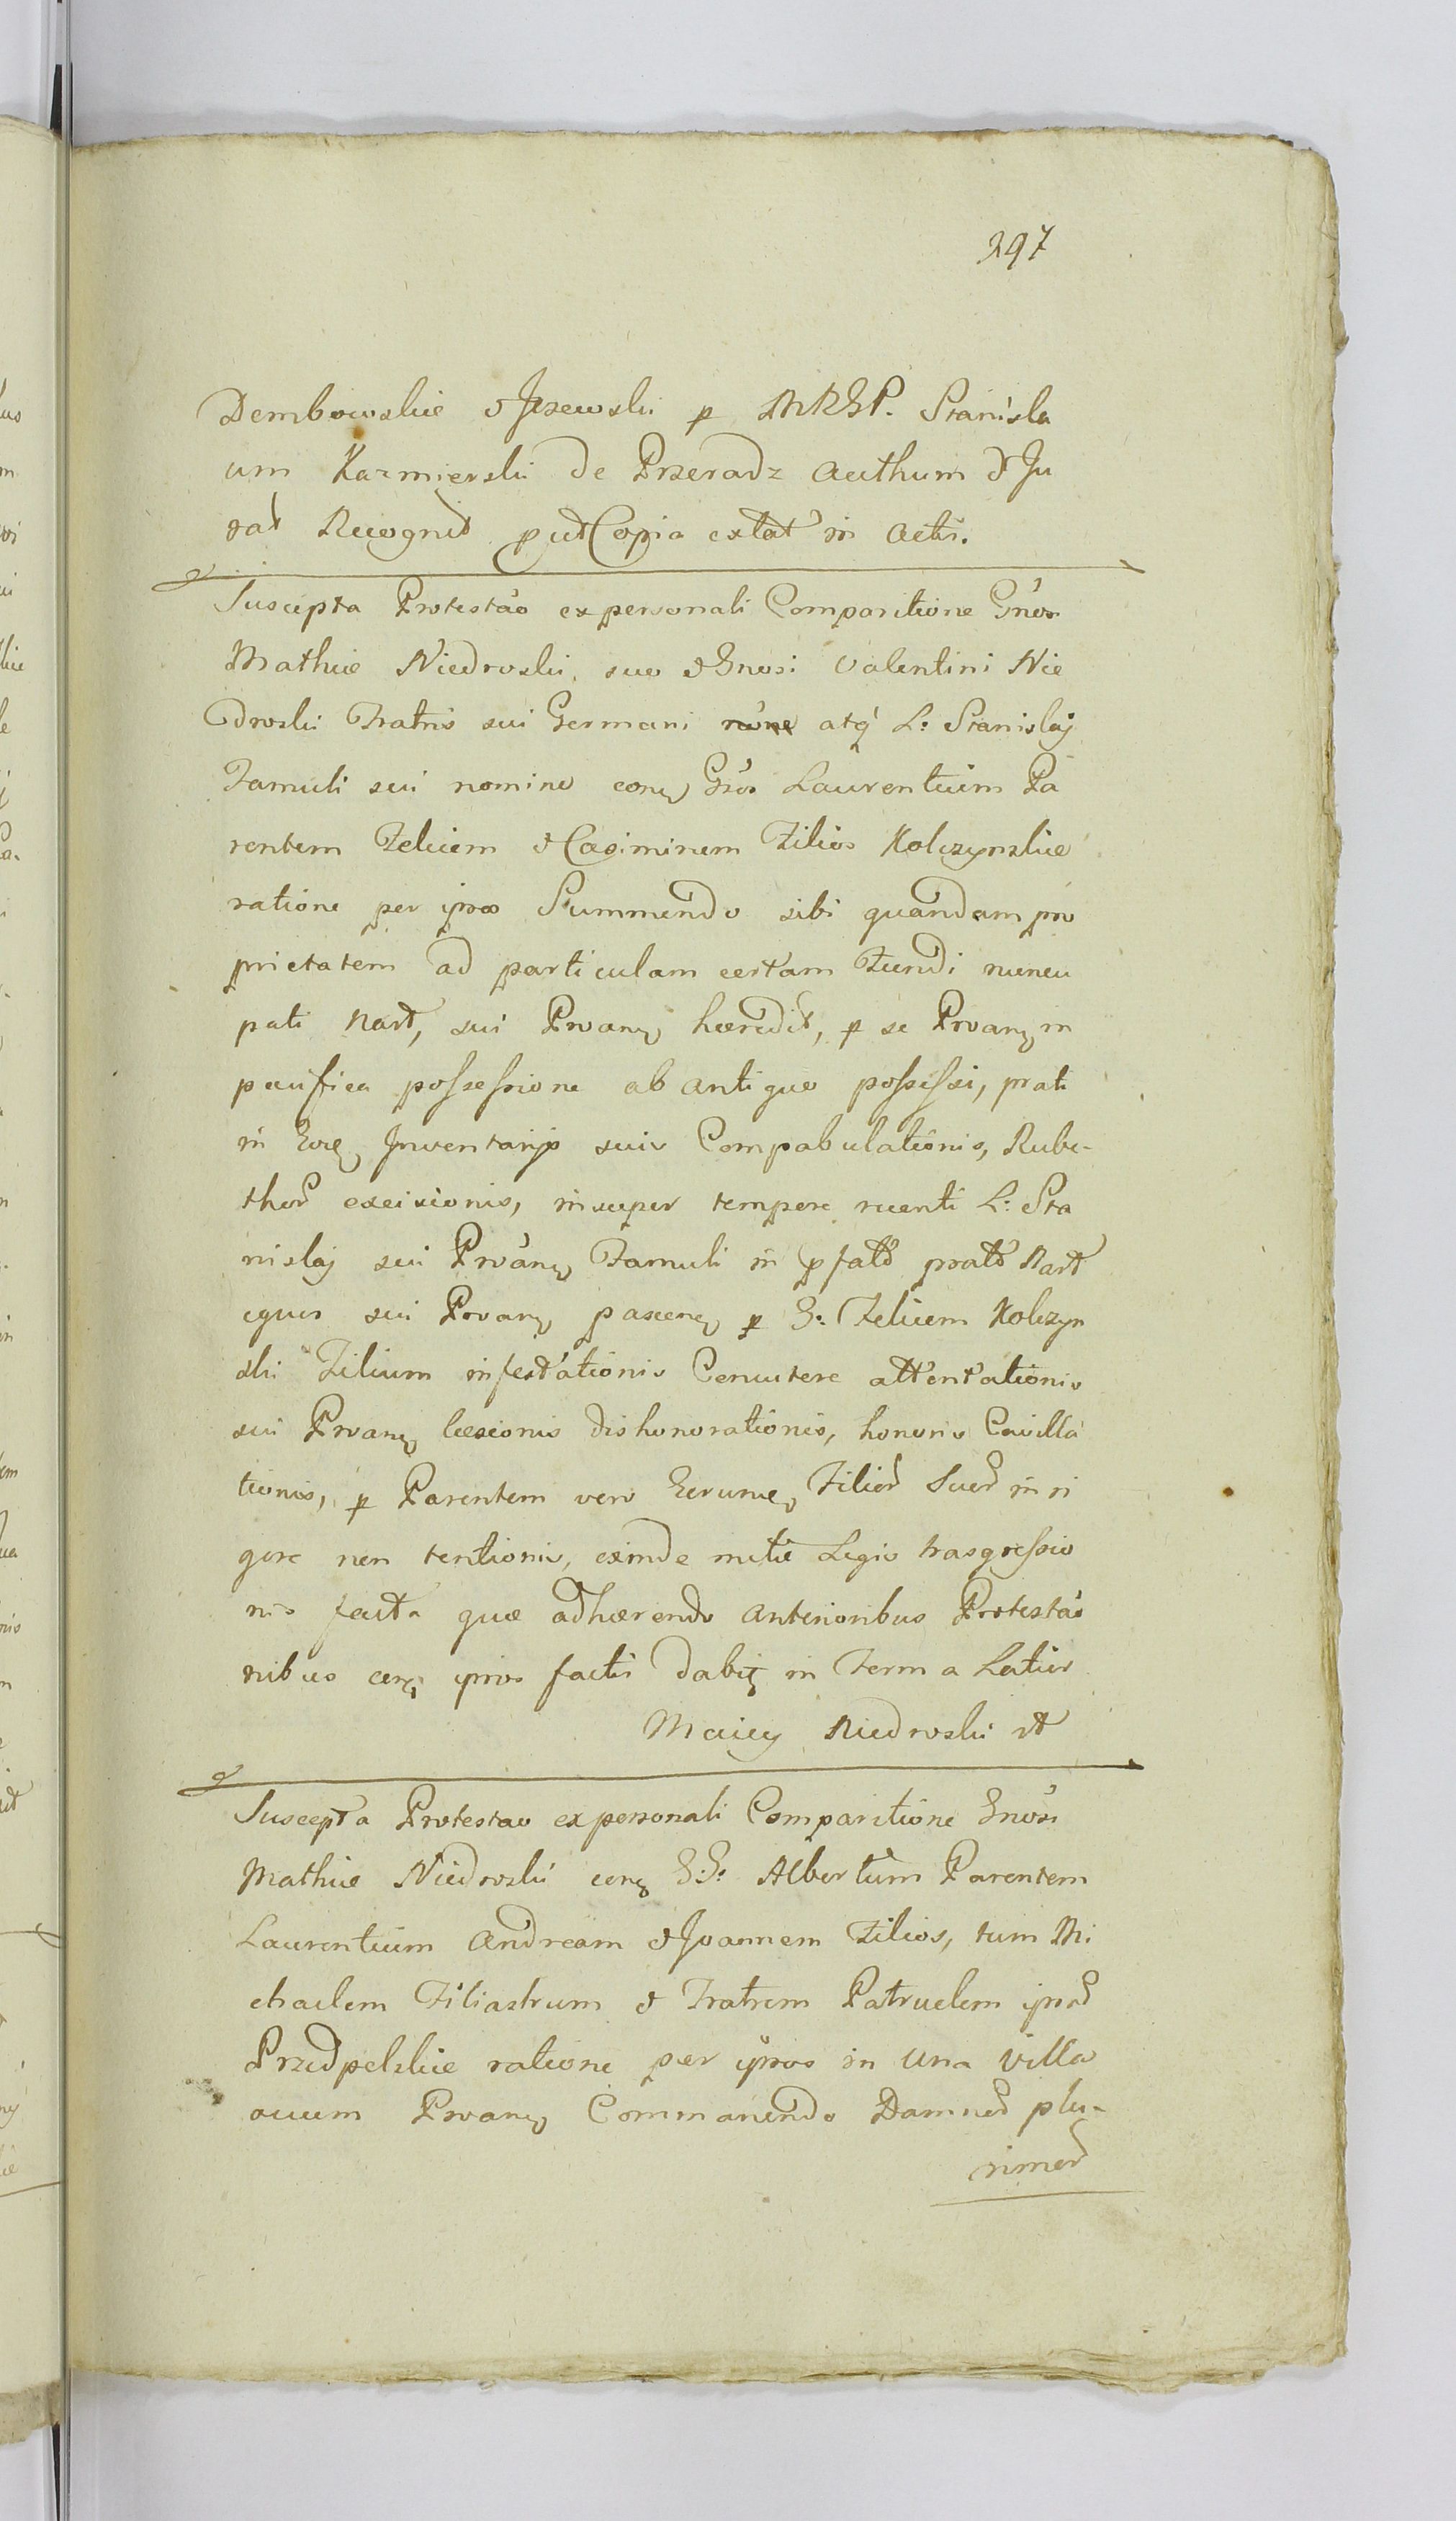 297
Dembowskie & Jzewski p MRGP. Stanisla
um Kazmierski de Przeradz Authum & Ju
rat Recognit put Copia extat in actis.
Suscepta Protestao ex personali Comparitione Gnosi
Mathiæ Niedroski, suo & Gnosi Valentini Nie
droski Fratris sui Germani atq L: Stanislaj
Famuli sui nomine conq Gnos Laurentium Pa
rentem Felicem & Casimirum Filios Kolczynskie
ratione per ipsos Summendo sibi quandam pro
prietatem ad particulam certam Fundi nuncu
pati Nart, sui Proanq hæredit, p se Proanq in
pacifica possessione ab antiquo possessi, prati
in Inventarijs suis Compabulationis, Rube-
thor excisionis, insuper tempore ruenti L: Sta
nislaj sui Proanq Famuli in pfato prato Nart
equos sui Proanq pascenq p G: Felicem Kolczyn
ski Filium infestationis attentationis
sui Proanq læsionis dishonorationis, honoris Cavilla
tionis, p Parentem vero Filior Suor in ri
gore non tentionis, exinde Legis trasgressio
nis facta quæ adhærendo anterioribus Protestao
nibus conq ipsos factis dabit in Term a Latius
Maciey Niedroski
Suscepta Protestao ex personali Comparitione Gnosi
Mathiæ Niedroski conq G:G: Albertum Parentem
Laurentium Andream & Joannem Filios, tum Mi
chaelem Filiastrum & Fratrem Patruelem ipsor
Przedpelskie ratione per ipsos in una villa
cum Proanq Commanendo Damnor plu-
rimor